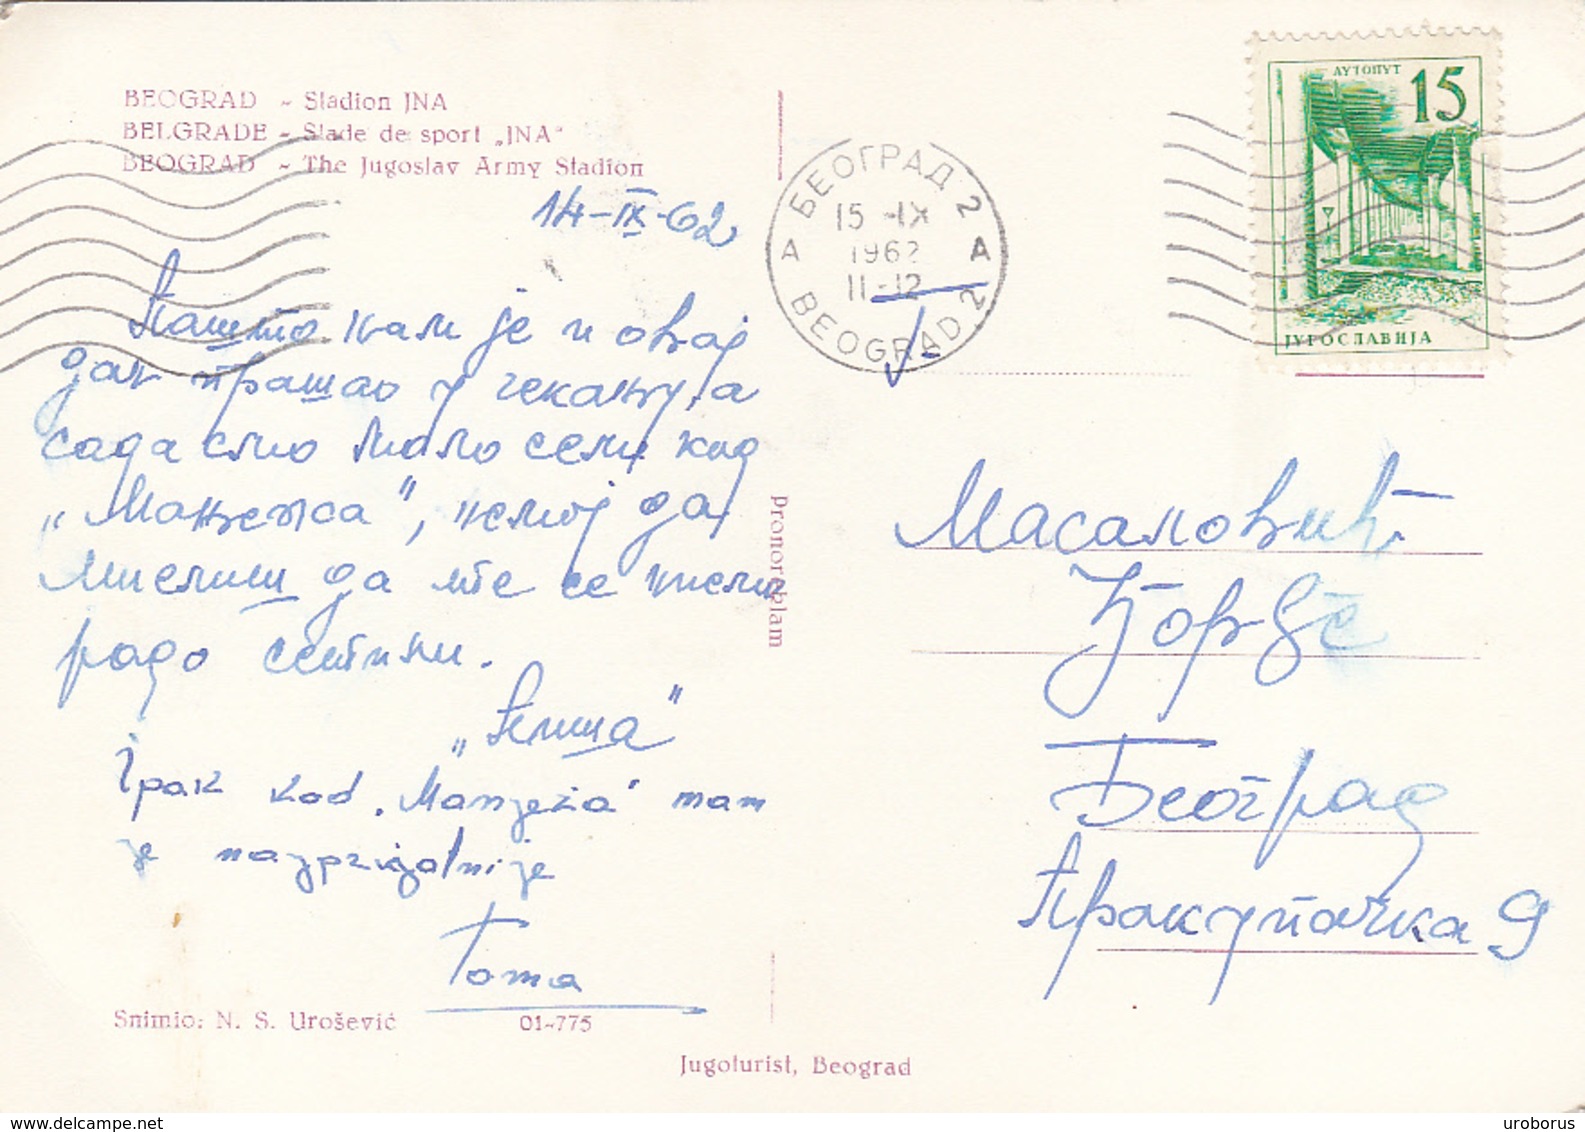 BEOGRAD - Stadion JNA
BELGRADE - Stade de sport „JNA“
BEOGRAD - The Jugoslav Army Stadion
14-IX-62
Пошто нам је и овај
дан прошао у чекању, а
сада смо мало сели код
„Мањежа“, немој да
мислиш да те се нисмо
радо сетили.
Ipak kod „Manježa“ nam
je najprijatnije
Toma
Snimio: N. S. Urošević
01-775
Jugoturist, Beograd
Pronoreklam
БЕОГРАД 2
15 -IX
1962
11-12
A A
BEOGRAD 2
АУТОПУТ
15
ЈУГОСЛАВИЈА
Масаловић
Ђорђе
Београд
Пракупачка 9
uroborus